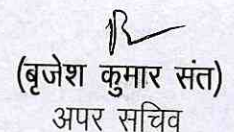 (बृजेश कुमार संत)
अपर सचिव